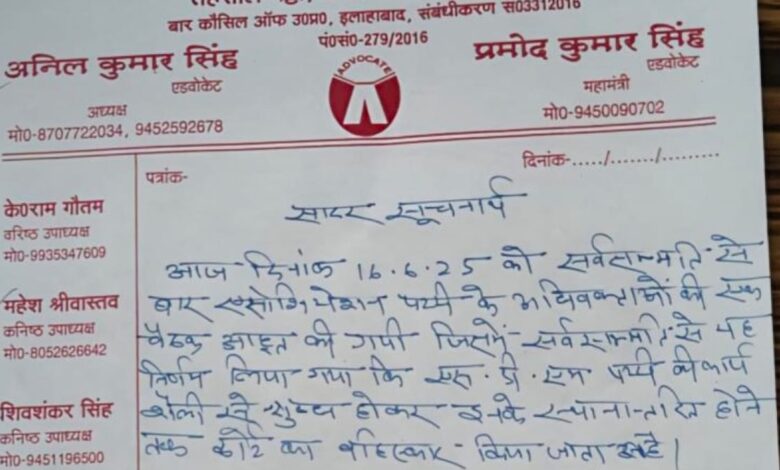 बार कौसिल ऑफ उ0प्र0, इलाहाबाद, संबंधीकरण स03312016
पं0सं0-279/2016
अनिल कुमार सिंह
एडवोकेट
अध्यक्ष
मो0-8707722034, 9452592678
ADVOCATE
प्रमोद कुमार सिंह
एडवोकेट
महामंत्री
मो0-9450090702
पत्रांक-
दिनांक-...../......./.........
के0राम गौतम
वरिष्ठ उपाध्यक्ष
मो0-9935347609
महेश श्रीवास्तव
कनिष्ठ उपाध्यक्ष
मो0-8052626642
शिवशंकर सिंह
कनिष्ठ उपाध्यक्ष
मो0-9451196500
सादर सूचनार्थ
आज दिनांक 16.6.25 को सर्वसम्मति से
बार एसोशियेशन पट्टी के अधिवक्ताओं की एक
बैठक आहूत की गयी जिसमें सर्वसम्मति से यह
निर्णय लिया गया कि एस.डी.एम पट्टी की कार्य
शैली से क्षुब्ध होकर इनके स्थानान्तरित होने
तक कोर्ट का बहिस्कार किया जाता है।